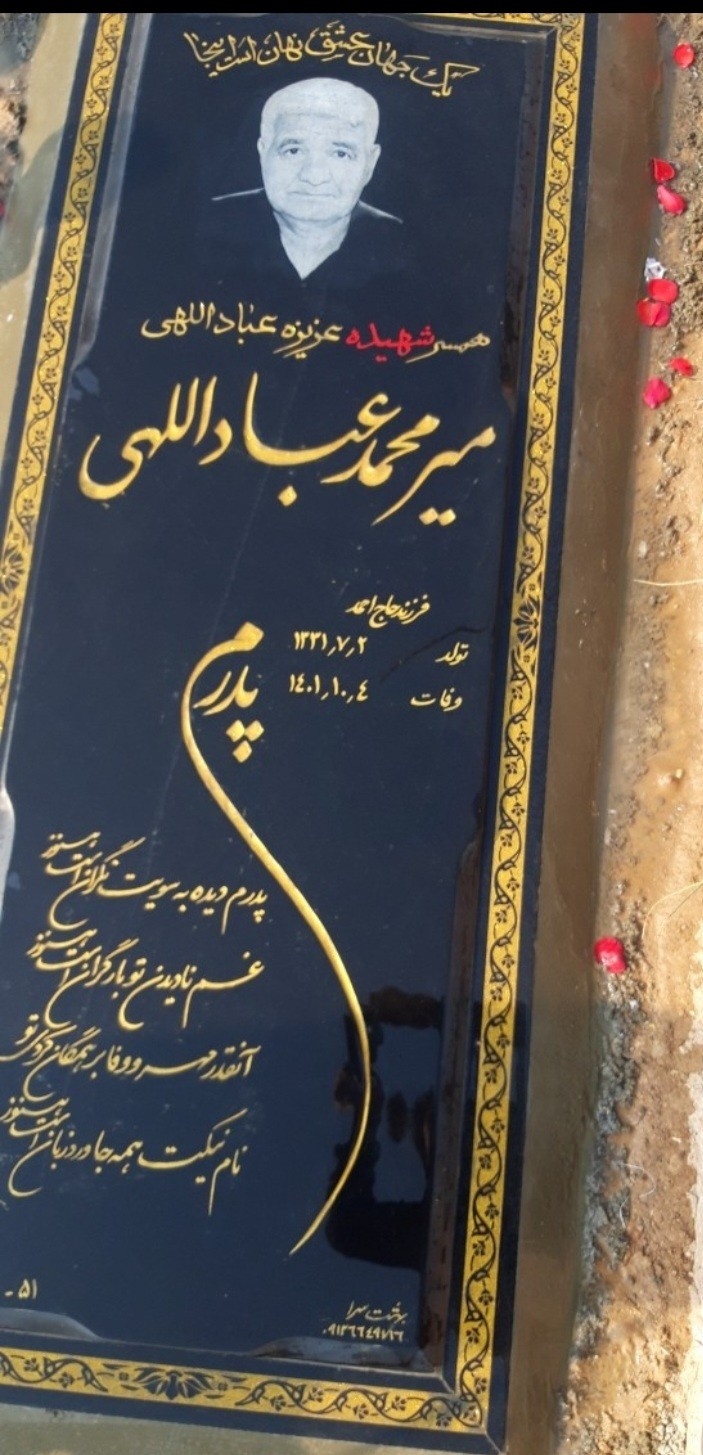 یک جهان عشق نهان است اینجا
همسر شهیده عزیزه عباداللهی
میر محمد عباداللهی
فرزند حاج احمد
تولد ۱۳۳۱٫۷٫۲
وفات ۱۴۰۱٫۱۰٫۴
پدرم
پدرم دیده به سویت نگران است هنوز
غم نادیدن تو بار گران است هنوز
آنقدر مهر و وفا بر همگان کردی تو
نام نیکت همه جا ورد زبان است هنوز
۵۱ -
۰۹۱۳۶۶۴۹۷۱۶